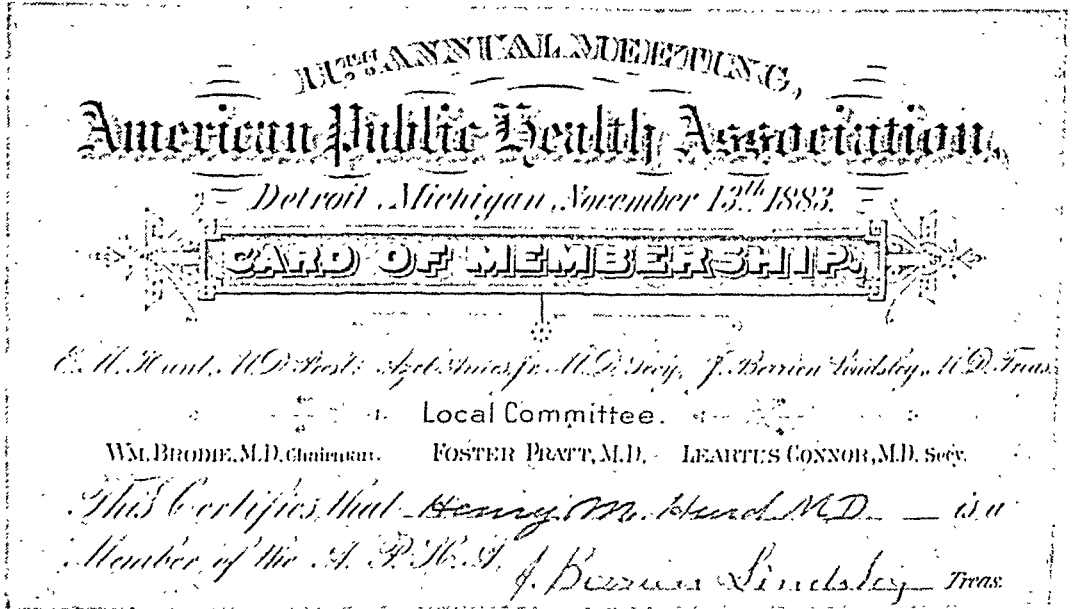 11TH ANNUAL MEETING,
American Public Health Association,
Detroit, Michigan, November 13th 1883.
CARD OF MEMBERSHIP.
E. M. Hunt, M.D. Prest. Azel Ames, Jr. M.D. Secy. J. Berrien Lindsley, M.D. Treas.
Local Committee.
WM. BRODIE, M.D. Chairman. FOSTER PRATT, M.D. LEARTUS CONNOR, M.D. Secy.
This Certifies that Henry M. Hurd M.D. is a
Member of the A. P. H. A.
J. Berrien Lindsley Treas.